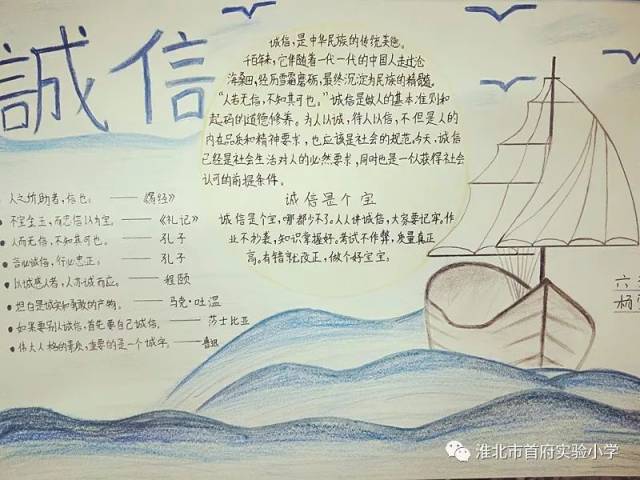 誠信
诚信,是中华民族的传统美德。
千百年来,它伴随着一代一代的中国人走过沧
海桑田,经历雪霜磨砺,最终沉淀为民族的精髓。
“人若无信,不知其可也。”诚信是做人的基本准则和
起码的道德修养。为人以诚,待人以信,不但是人的
内在品质和精神要求,也应该是社会的规范。今天,诚信
已经是社会生活对人的必然要求,同时也是一个人获得社会
认可的前提条件。
诚信是个宝
诚信是个宝,哪都少不了。人人讲诚信,大家要记牢。作
业不抄袭,知识掌握好。考试不作弊,质量真正
高。有错就改正,做个好宝宝。
人之所助者,信也。——《易经》
不宝金玉,而忠信以为宝。——《礼记》
人而无信,不知其可也。——孔子
言必诚信,行必忠正。——孔子
以诚感人者,人亦诚而应。——程颐
坦白是诚实和勇敢的产物。——马克·吐温
如果要别人诚信,首先要自己诚信。——莎士比亚
伟大人格的素质,重要的是一个诚字。——鲁迅
六
杨
淮北市首府实验小学